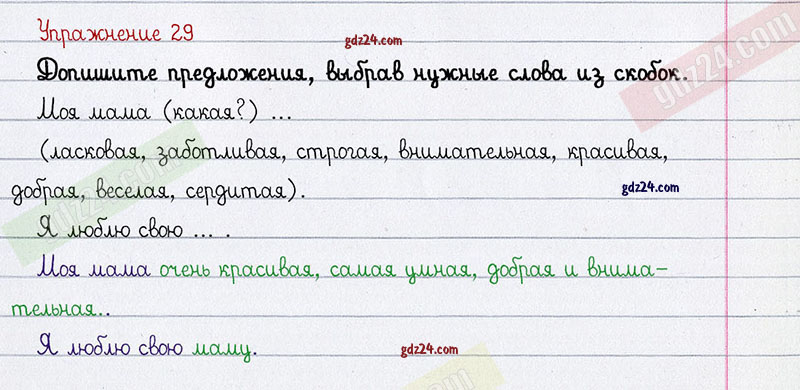 Упражнение 29
gdz24.com
Допишите предложения, выбрав нужные слова из скобок.
gdz24.com
Моя мама (какая?) ...
(ласковая, заботливая, строгая, внимательная, красивая,
добрая, веселая, сердитая).
gdz24.com
gdz24.com
Я люблю свою ... .
Моя мама очень красивая, самая умная, добрая и внима-
тельная..
Я люблю свою маму.
gdz24.com